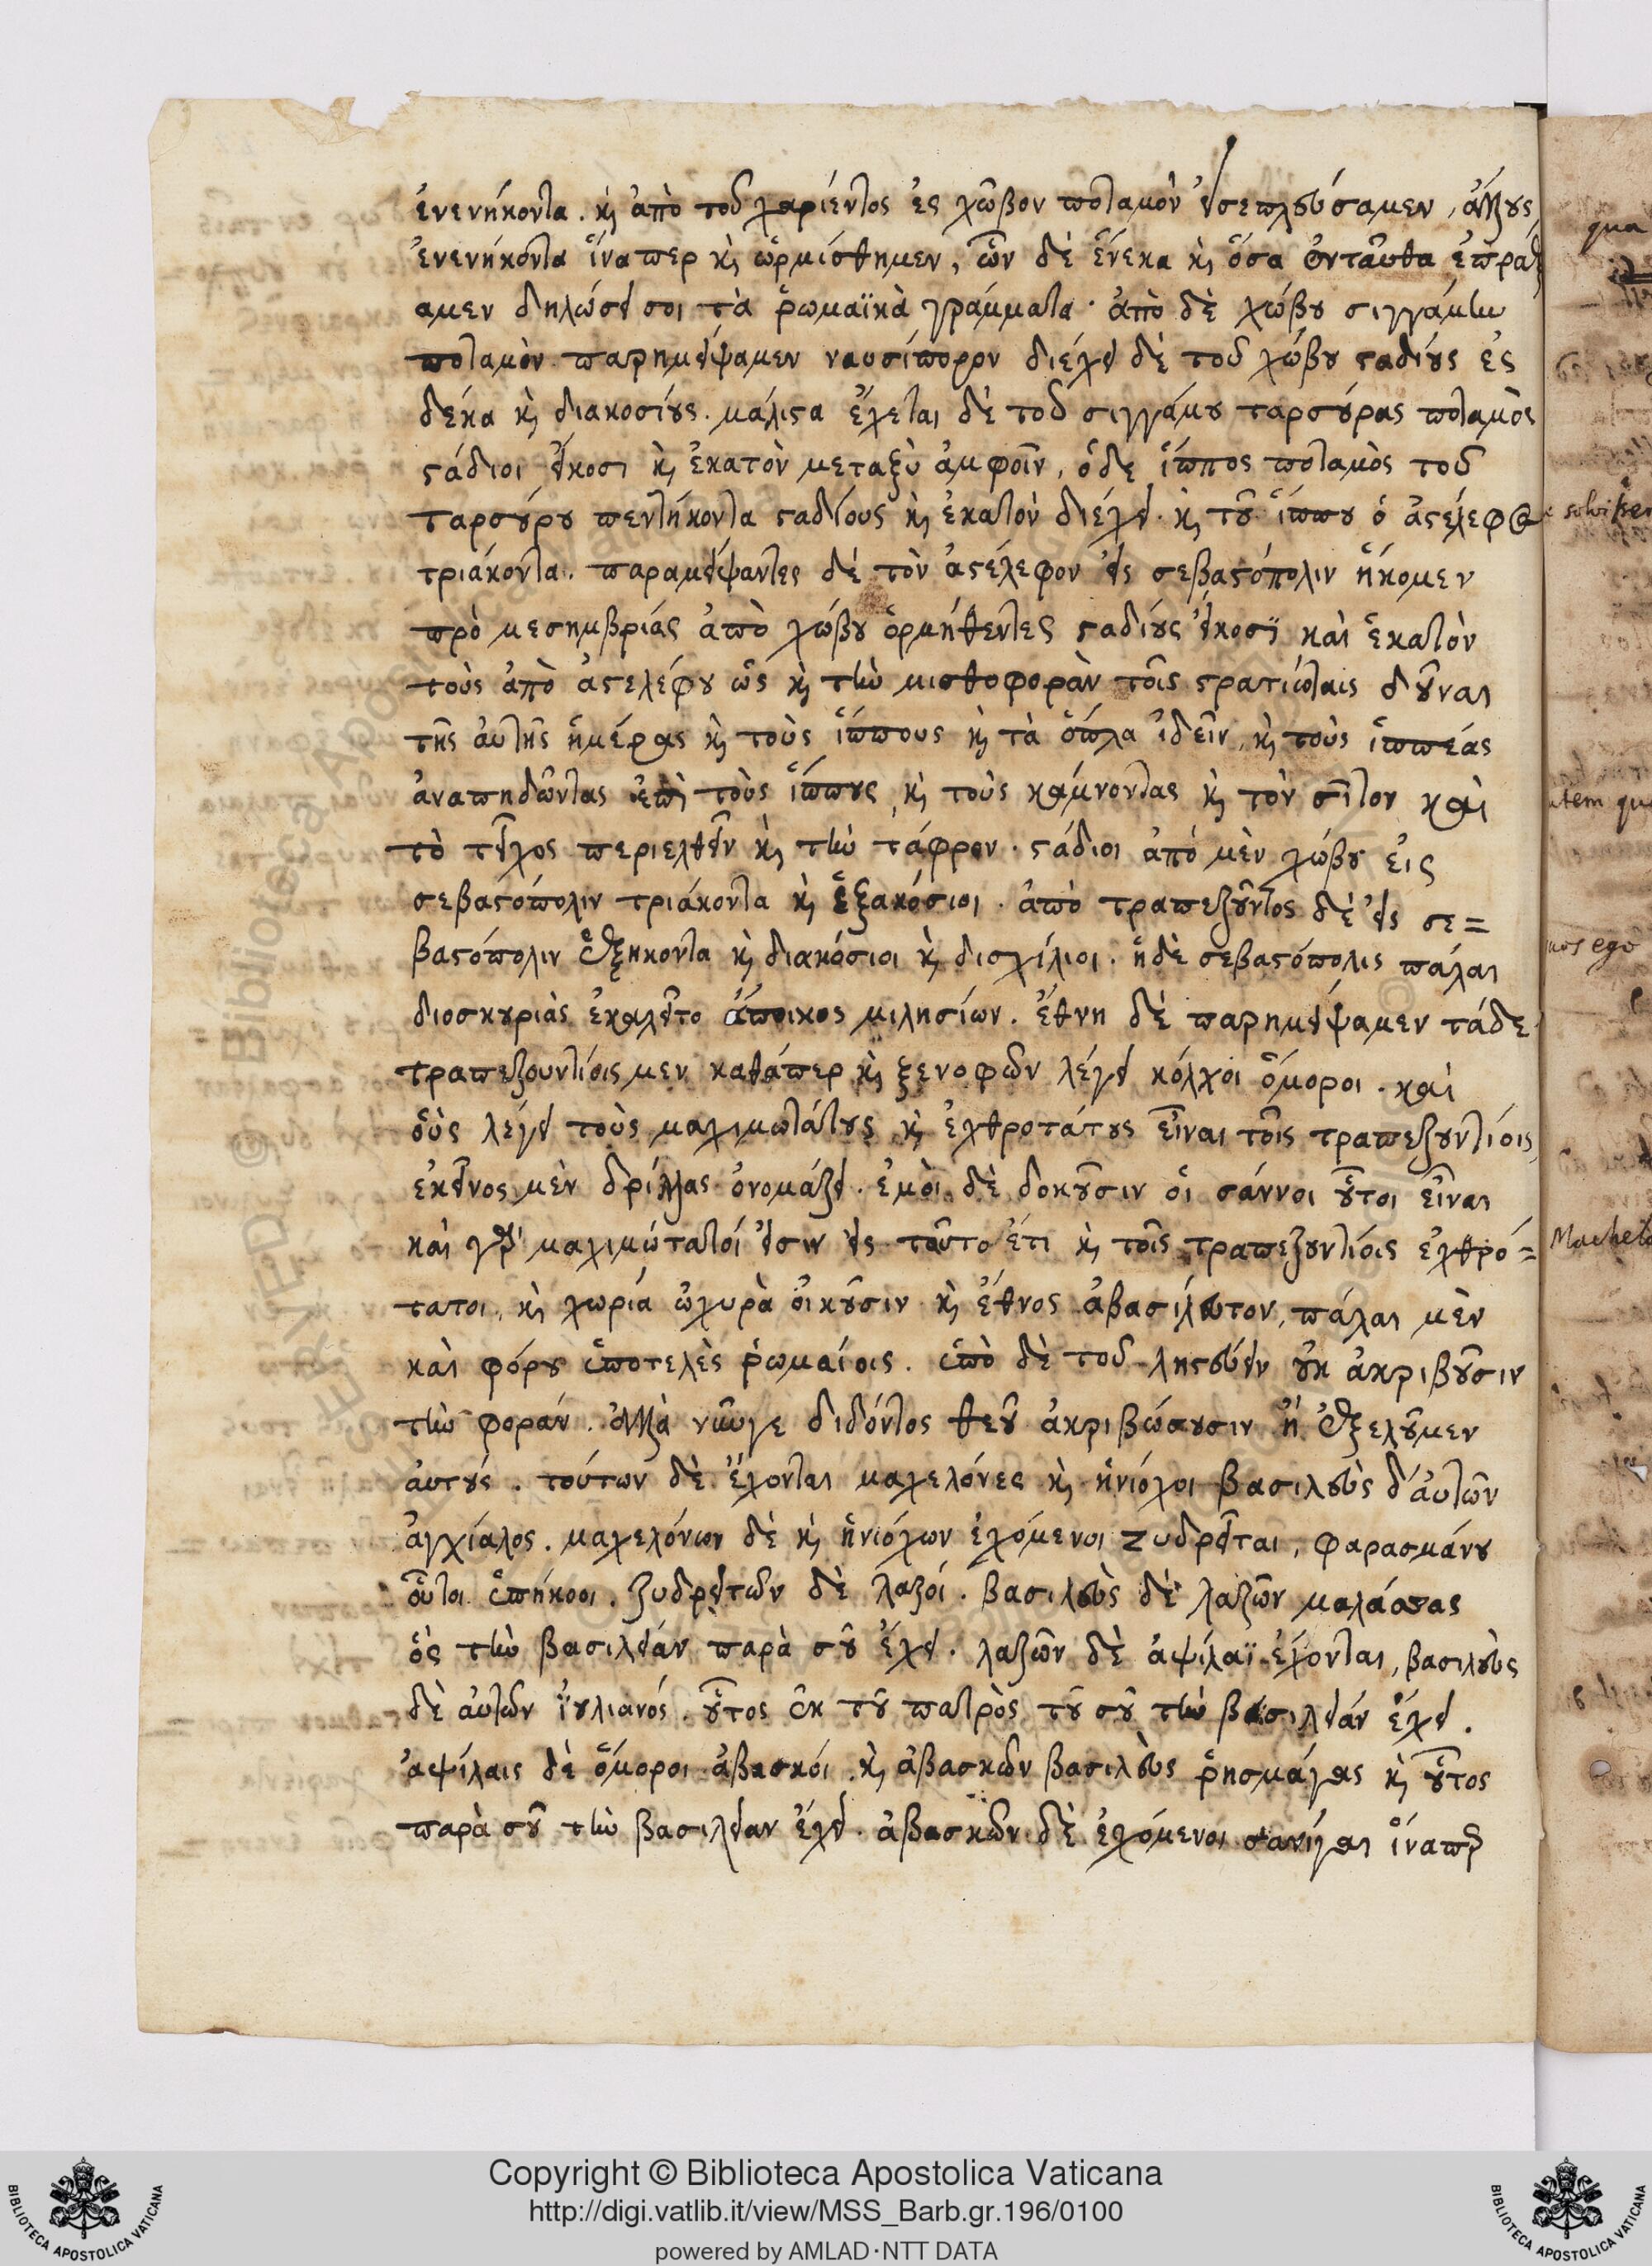 ἐνενήκοντα. κ̀ ἀπὸ τοῦ χαριέντος ἐς χῶβον ποταμὸν εἰσεπλεύσαμεν, ἄλλους
ἐνενήκοντα ἵναπερ κ̀ ὡρμίσθημεν, ὧν δὲ ἕνεκα κ̀ ὅσα ἐνταῦθα ἐπράξ
αμεν δηλώσει σοι τὰ ῥωμαϊκὰ γράμματα. ἀπὸ δὲ χώβου σιγγάμην
ποταμὸν παρημείψαμεν ναυσίπορον διέχει δὲ τοῦ χώβου σταδίους ἐς
δέκα κ̀ διακοσίους. μάλιστα ἔχεται δὲ τοῦ σιγγάμου ταρσούρας ποταμὸς
στάδιοι εἴκοσι κ̀ ἑκατὸν μεταξὺ ἀμφοῖν, ὁδε ἵππος ποταμὸς τοῦ
ταρσούρου πεντήκοντα σταδίους κ̀ ἑκατὸν διέχει. κ̀ τοῦ ἵππου ὁ ἀστέλεφος
τριάκοντα. παραμείψαντες δὲ τὸν ἀστέλεφον εἰς σεβαστόπολιν ἥκομεν
πρὸ μεσημβρίας ἀπὸ χώβου ὁρμήθεντες σταδίους εἴκοσϊ καὶ ἑκατὸν
τοὺς ἀπὸ ἀστελέφου ὡς κ̀ τὴν μισθοφορὰν τοῖς στρατιώταις δοῦναι
τῆς αὐτῆς ἡμέρας κ̀ τοὺς ἵππους κ̀ τὰ ὅπλα ἰδεῖν, κ̀ τοὺς ἱππεάς
ἀναπηδῶντας ἐπὶ τοὺς ἵππους κ̀ τοὺς κάμνοντας κ̀ τὸν σῖτον καὶ
τὸ τεῖχος περιελθεῖν κ̀ τὴν τάφρον. στάδιοι ἀπό μὲν χώβου εἰς
σεβαστόπολιν τριάκοντα κ̀ ἑξακόσιοι. ἀπὸ τραπεζοῦντος δὲ εἰς σε=
βαστόπολιν ἑξήκοντα κ̀ διακόσιοι κ̀ δισχίλιοι. ἡδὲ σεβαστόπολις πάλαι
διοσκουριὰς ἐκαλεῖτο ἄποικος μιλησίων. ἔθνη δὲ παρημείψαμεν τάδε
τραπεζουντίοις μεν καθάπερ κ̀ ξενοφῶν λέγει κόλχοι ὅμοροι. καὶ
οὓς λέγει τοὺς μαχιμωτάτους κ̀ ἐχθροτάτους εἶναι τοῖς τραπεζουντίοις
ἐκεῖνος μὲν δρίλλας ὀνομάζει. ἐμὸι δὲ δοκοῦσιν οἱ σάννοι οὗτοι εἶναι
καὶ γὰρ μαχιμώτατοί εἰσιν εἰς τοῦτο ἔτι κ̀ τοῖς τραπεζουντίοις ἐχθρό=
τατοι, κ̀ χωρία ὀχυρὰ οἰκοῦσιν κ̀ ἔθνος ἀβασίλευτον, πάλαι μὲν
καὶ φόρου ὑποτελὲς ῥωμαίοις. ὑπὸ δὲ τοῦ λῃστεύειν οὐκ ἀκριβοῦσιν
τὴν φοράν. ἀλλὰ νῦνγε διδόντος θεοῦ ἀκριβώσουσιν ἢ ἐξελοῦμεν
ἀυτούς. τούτων δὲ ἔχονται μαχελόνες κ̀ ἡνιόχοι βασιλεὺς δ' αὐτῶν
ἀγχίαλος. μαχελόνων δὲ κ̀ ἡνιόχων ἐχόμενοι ζυδρεῖται, φαρασμάνου
οὗτοι ὑπήκοοι. ζυδρειτῶν δὲ λαζοί. βασιλεὺς δὲ λαζῶν μαλάσσας
ὃς τὴν βασιλείάν παρὰ σοῦ ἔχει. λαζῶν δὲ ἀψίλαϊ ἐχονται, βασιλεὺς
δὲ αὐτῶν ἰουλιανός. οὗτος ἐκ τοῦ πατρὸς τοῦ σοῦ τὴν βασιλείάν ἔχει.
ἀψίλαις δὲ ὅμοροι ἀβασκοί. κ̀ ἀβασκῶν βασιλεὺς ῥησμάγας κ̀ οὗτος
παρὰ σοῦ τὴν βασιλείαν ἔχει. ἀβασκῶν δὲ ἐχόμενοι σανίγαι ἵναπερ
qua
solvisse
autem qu
nos ego
Machelo
Copyright © Biblioteca Apostolica Vaticana
http://digi.vatlib.it/view/MSS_Barb.gr.196/0100
powered by AMLAD·NTT DATA
BIBLIOTECA APOSTOLICA VATICANA
BIBLIOTECA APOSTOLICA VATICANA